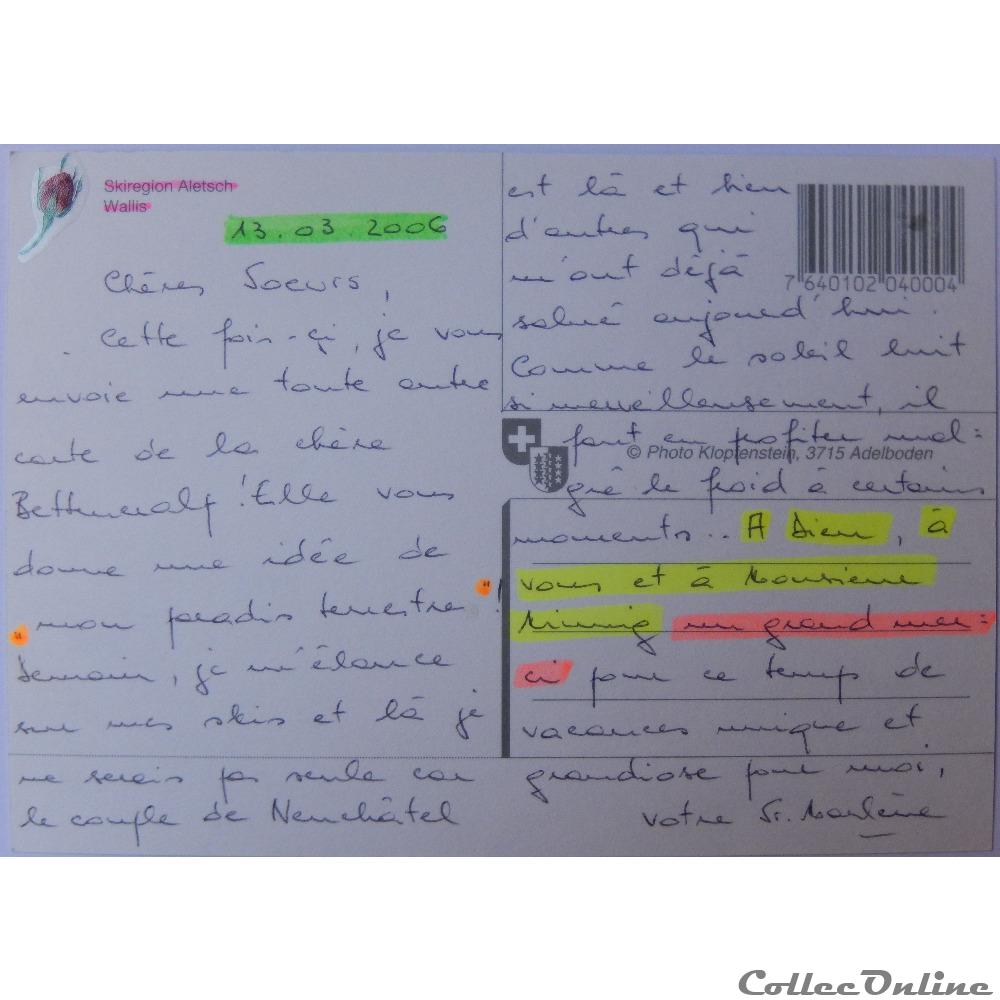 Skiregion Aletsch
Wallis
13.03.2006
Chères Soeurs,
Cette fois-çi, je vous
envoie une toute autre
carte de la chère
Bettmeralp! Elle vous
donne une idée de
"mon paradis terrestre"!
Demain, je m'élance
sur mes skis et là je
ne serais pas seule car
le couple de Neuchâtel
est là et bien
d'autres qui
m'ont déjà
salué aujourd'hui.
Comme le soleil luit
si merveilleusement, il
faut en profiter mal=
gré le froid à certains
moments.. A Dieu, à
vous et à Monsieur
un grand mer=
ci pour ce temps de
vacances unique et
grandiose pour moi,
votre Sr. Marlène
7 640102 040004
© Photo Klopfenstein, 3715 Adelboden
CollecOnline